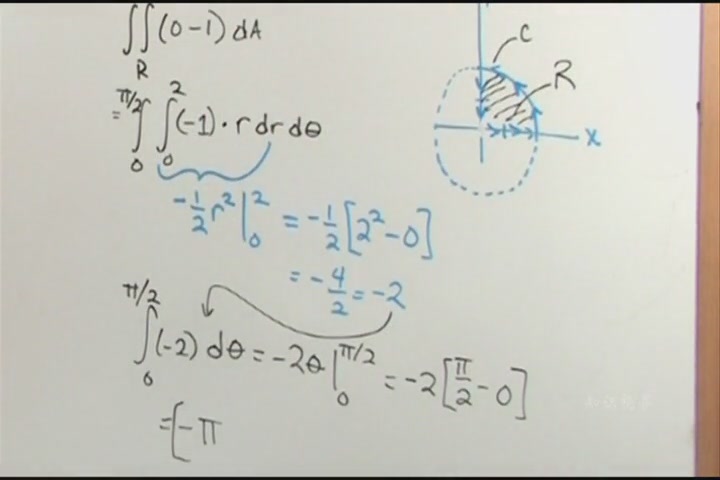 ∬_R (0-1) dA
C
R
= ∫_0^{π/2} ∫_0^2 (-1) · r dr dθ
x
-1/2 r² |_0^2 = -1/2 [2² - 0]
= -4/2 = -2
∫_0^{π/2} (-2) dθ = -2θ |_0^{π/2} = -2 [π/2 - 0]
= [-π